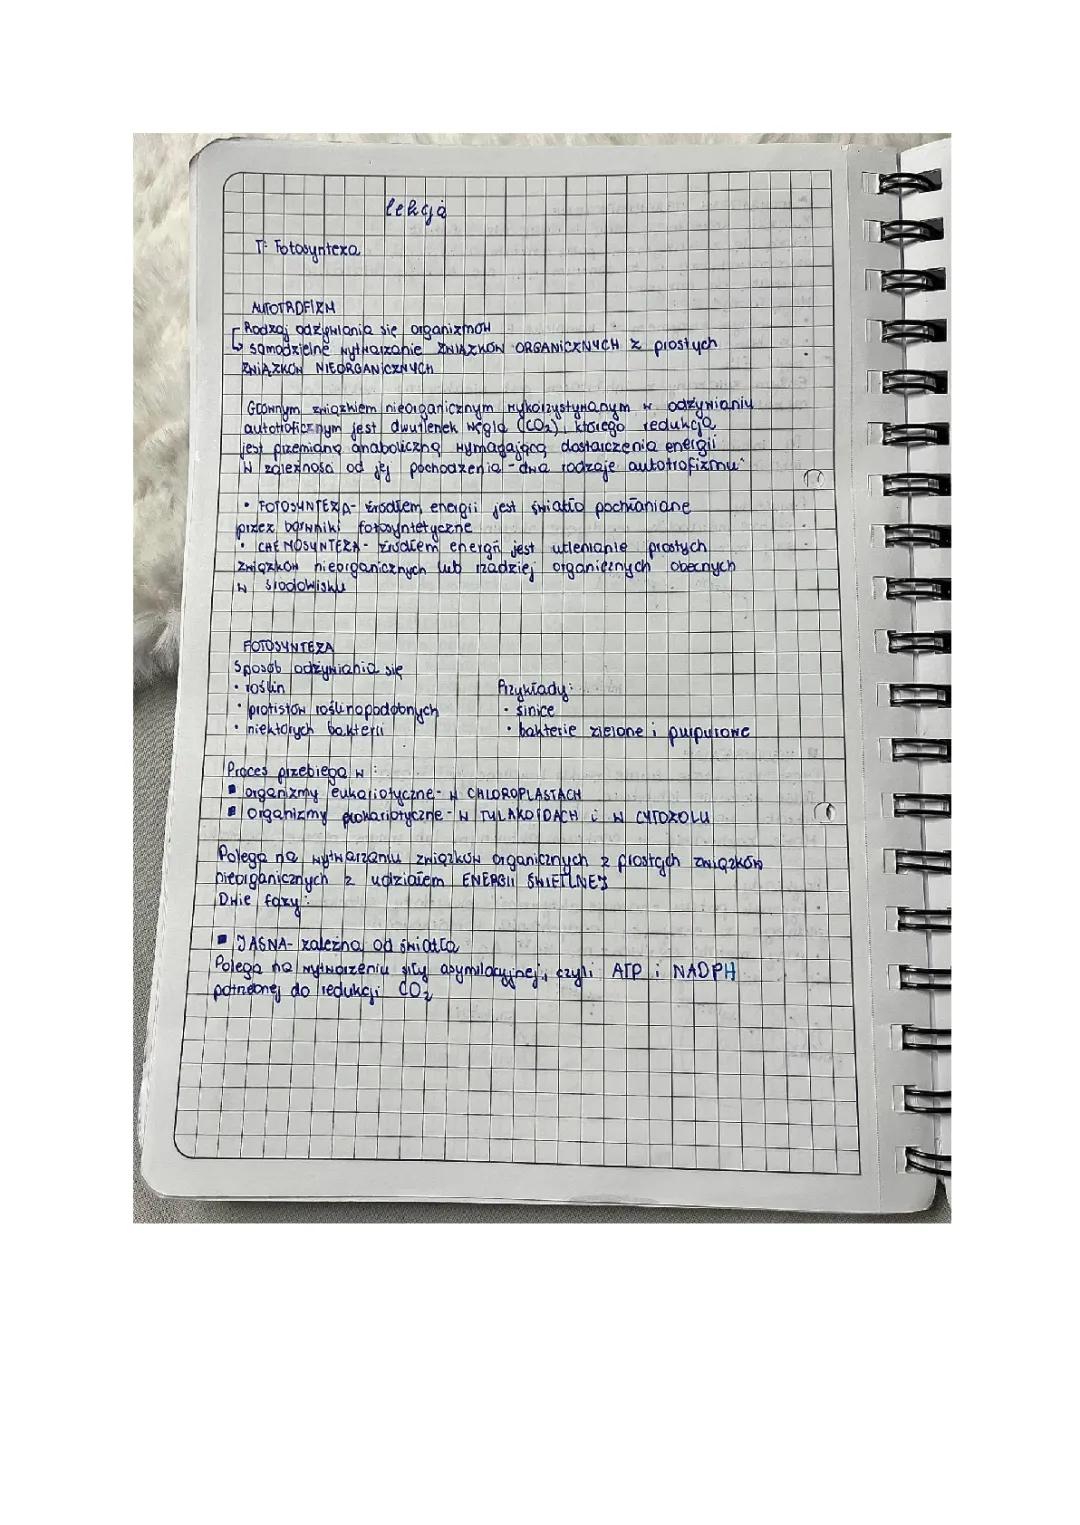 lekcja
T: Fotosynteza
AUTOTROFIZM
Rodzaj odżywiania się organizmów
↳ samodzielne wytwarzanie ZWIĄZKÓW ORGANICZNYCH z prostych
ZWIĄZKÓW NIEORGANICZNYCH
Głównym związkiem nieorganicznym wykorzystywanym w odżywianiu
autotroficznym jest dwutlenek węgla (CO₂), którego redukcja
jest przemianą anaboliczną wymagającą dostarczenia energii
W zależności od jej pochodzenia - dwa rodzaje autotrofizmu:
• FOTOSYNTEZA - źródłem energii jest światło pochłaniane
przez barwniki fotosyntetyczne
• CHEMOSYNTEZA - źródłem energii jest utlenianie prostych
związków nieorganicznych lub rzadziej organicznych obecnych
w środowisku
FOTOSYNTEZA
Sposób odżywiania się
• roślin
• protistów roślinopodobnych
• niektórych bakterii
Przykłady:
• sinice
• bakterie zielone i purpurowe
Proces przebiega w:
▪ organizmy eukariotyczne - w CHLOROPLASTACH
▪ organizmy prokariotyczne - w TYLAKOIDACH i w CYTOZOLU
Polega na wytwarzaniu związków organicznych z prostych związków
nieorganicznych z udziałem ENERGII ŚWIETLNEJ
Dwie fazy:
▪ JASNA - zależna od światła
Polega na wytworzeniu siły asymilacyjnej, czyli ATP i NADPH
potrzebnej do redukcji CO₂